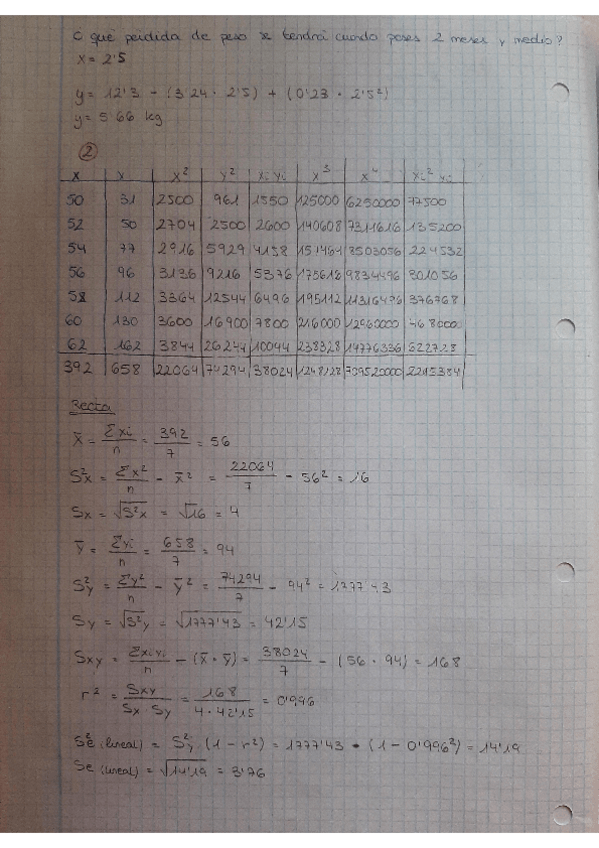 ¿ qué perdida de peso se tendrá cuando pases 2 meses y medio?
x = 2'5
y = 12'3 - (3'24 · 2'5) + (0'23 · 2'5²)
y = 5'66 kg
2
x y x² y² xi yi x³ x⁴ xi² yi
50 31 2500 961 1550 125000 6250000 77500
52 50 2704 2500 2600 140608 7311616 135200
54 77 2916 5929 4158 157464 8503056 224532
56 96 3136 9216 5376 175616 9834496 301056
58 112 3364 12544 6496 195112 11316496 376768
60 130 3600 16900 7800 216000 12960000 468000
62 162 3844 26244 10044 238328 14776336 622728
392 658 22064 74294 38024 1248128 2215384
Recta
x̄ = Σxi/n = 392/7 = 56
S²x = Σx²/n - x̄² = 22064/7 - 56² = 16
Sx = √S²x = √16 = 4
ȳ = Σyi/n = 658/7 = 94
S²y = Σy²/n - ȳ² = 74294/7 - 94² = 1777'43
Sy = √S²y = √1777'43 = 42'15
Sxy = Σxiyi/n - (x̄ · ȳ) = 38024/7 - (56 · 94) = 168
r² = Sxy/Sx Sy = 168/4·42'15 = 0'996
S²e (lineal) = S²y (1 - r²) = 1777'43 · (1 - 0'996²) = 14'19
Se (lineal) = √14'19 = 3'76